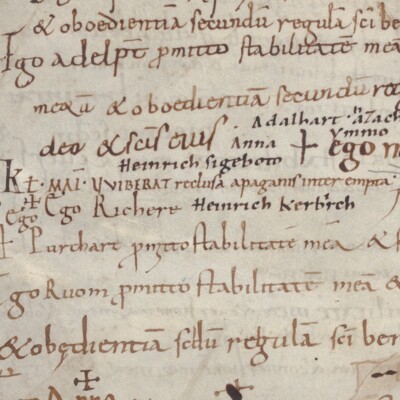 & oboedientiā secundū regulā sc̄i be
Ego adelpt̄ p̄mitto stabilitatē meā
meōrū & oboedientiā secundū re
Adalhart · azach
deo & sc̄is eius Anna + ymmo ego
Heinrich sigeboto
Kt · MAI · VVIBERAT reclusa apaganis inter empta
Ego Ego Richere Heinrich Kerbrch
+ Purchart p̄mitto stabilitatē meā & 
Ego Ruom p̄mitto stabilitatē meā &
& obędientiā scdū regulā sc̄i ben